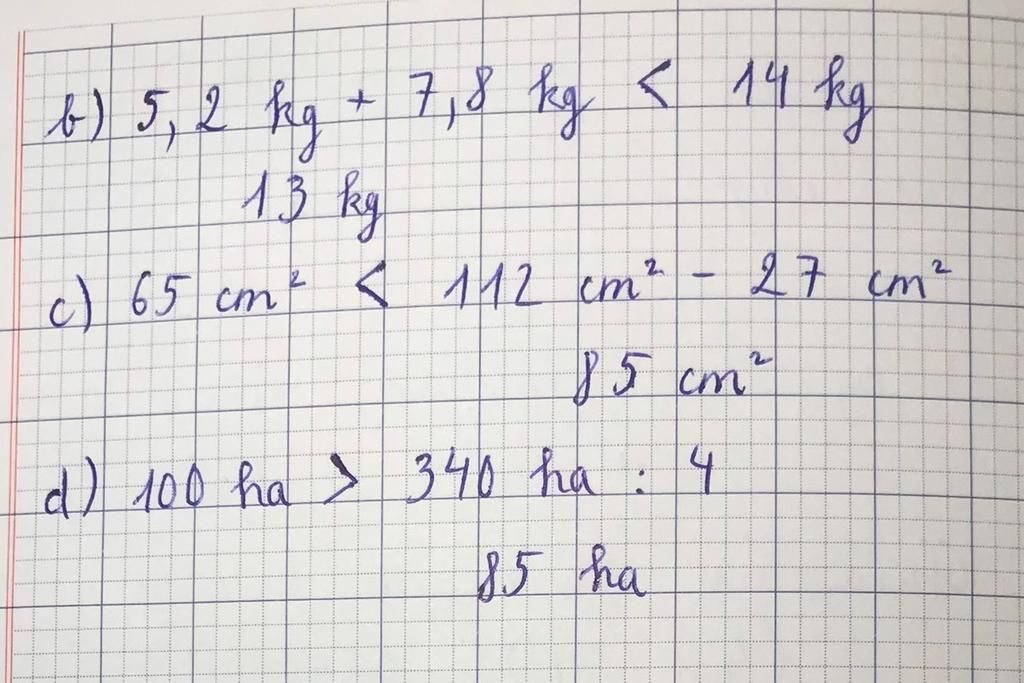 b) 5,2 kg + 7,8 kg < 14 kg
13 kg
c) 65 cm² < 112 cm² - 27 cm²
85 cm²
d) 100 ha > 340 ha : 4
85 ha